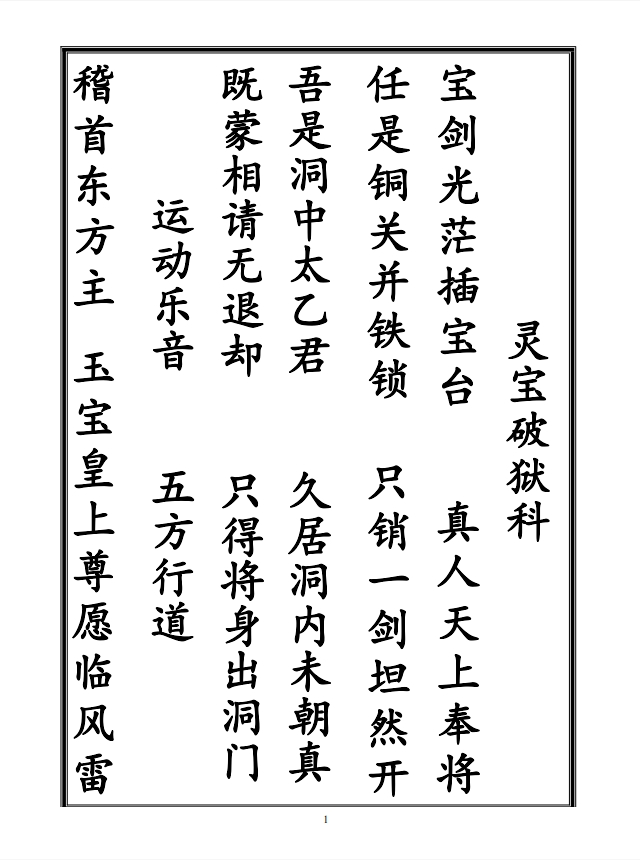 灵宝破狱科
宝剑光茫插宝台 真人天上奉将
任是铜关并铁锁 只销一剑坦然开
吾是洞中太乙君 久居洞内未朝真
既蒙相请无退却 只得将身出洞门
运动乐音 五方行道
稽首东方主 玉宝皇上尊愿临风雷
1